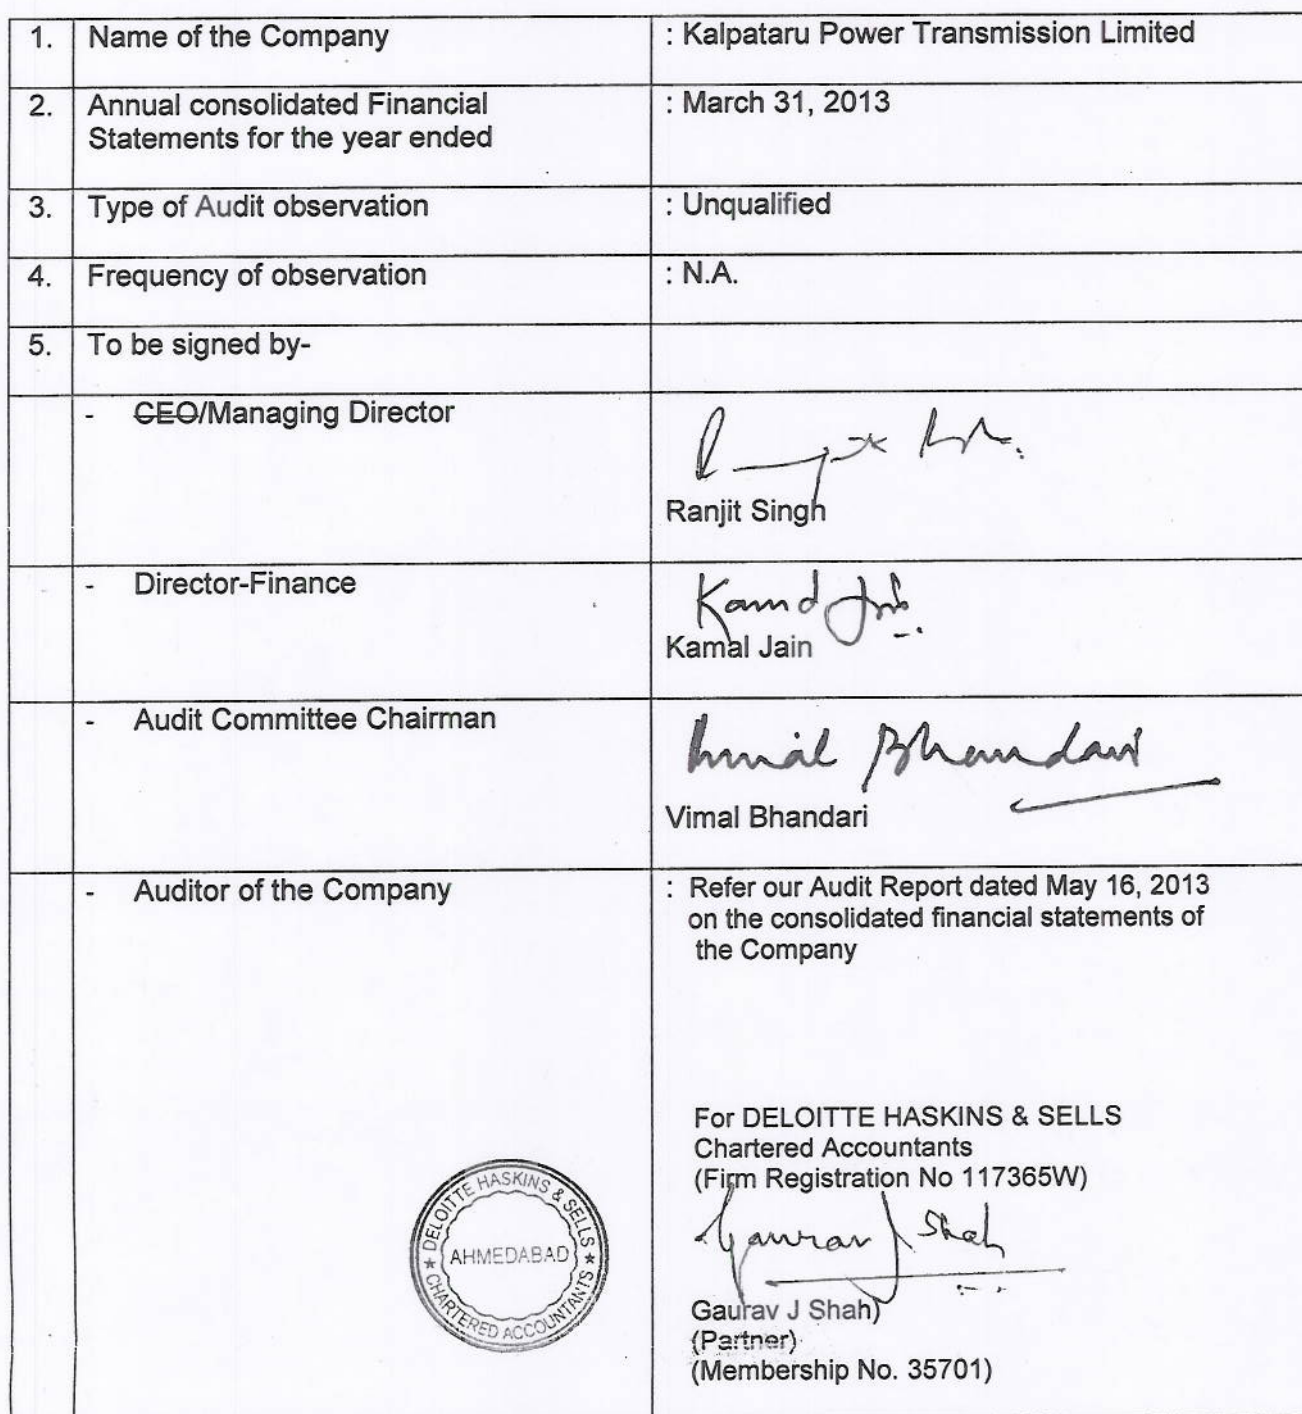 1. Name of the Company : Kalpataru Power Transmission Limited
2. Annual consolidated Financial : March 31, 2013
Statements for the year ended
3. Type of Audit observation : Unqualified
4. Frequency of observation : N.A.
5. To be signed by-
- CEO/Managing Director
Ranjit Singh
- Director-Finance
Kamal Jain
Kamal Jain
- Audit Committee Chairman
Vimal Bhandari
Vimal Bhandari
- Auditor of the Company : Refer our Audit Report dated May 16, 2013
on the consolidated financial statements of
the Company
For DELOITTE HASKINS & SELLS
Chartered Accountants
(Firm Registration No 117365W)
Gaurav J Shah
DELOITTE HASKINS & SELLS
AHMEDABAD
★ CHARTERED ACCOUNTANTS ★
Gaurav J Shah)
(Partner)
(Membership No. 35701)